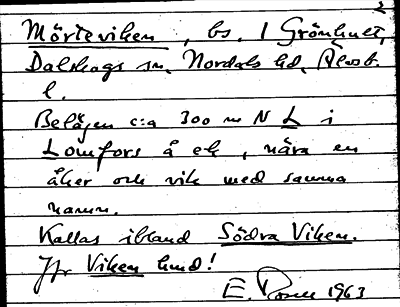 2
Mörteviken, bs. 1 Grönhult,
Dalskogs sn, Nordals hd, Älvsb.
l.
Belägen c:a 300 m N L i
Lomfors å ek, nära en
åker och vik med samma
namn.
Kallas ibland Södra Viken.
Jfr Viken hmd!
E. 1963